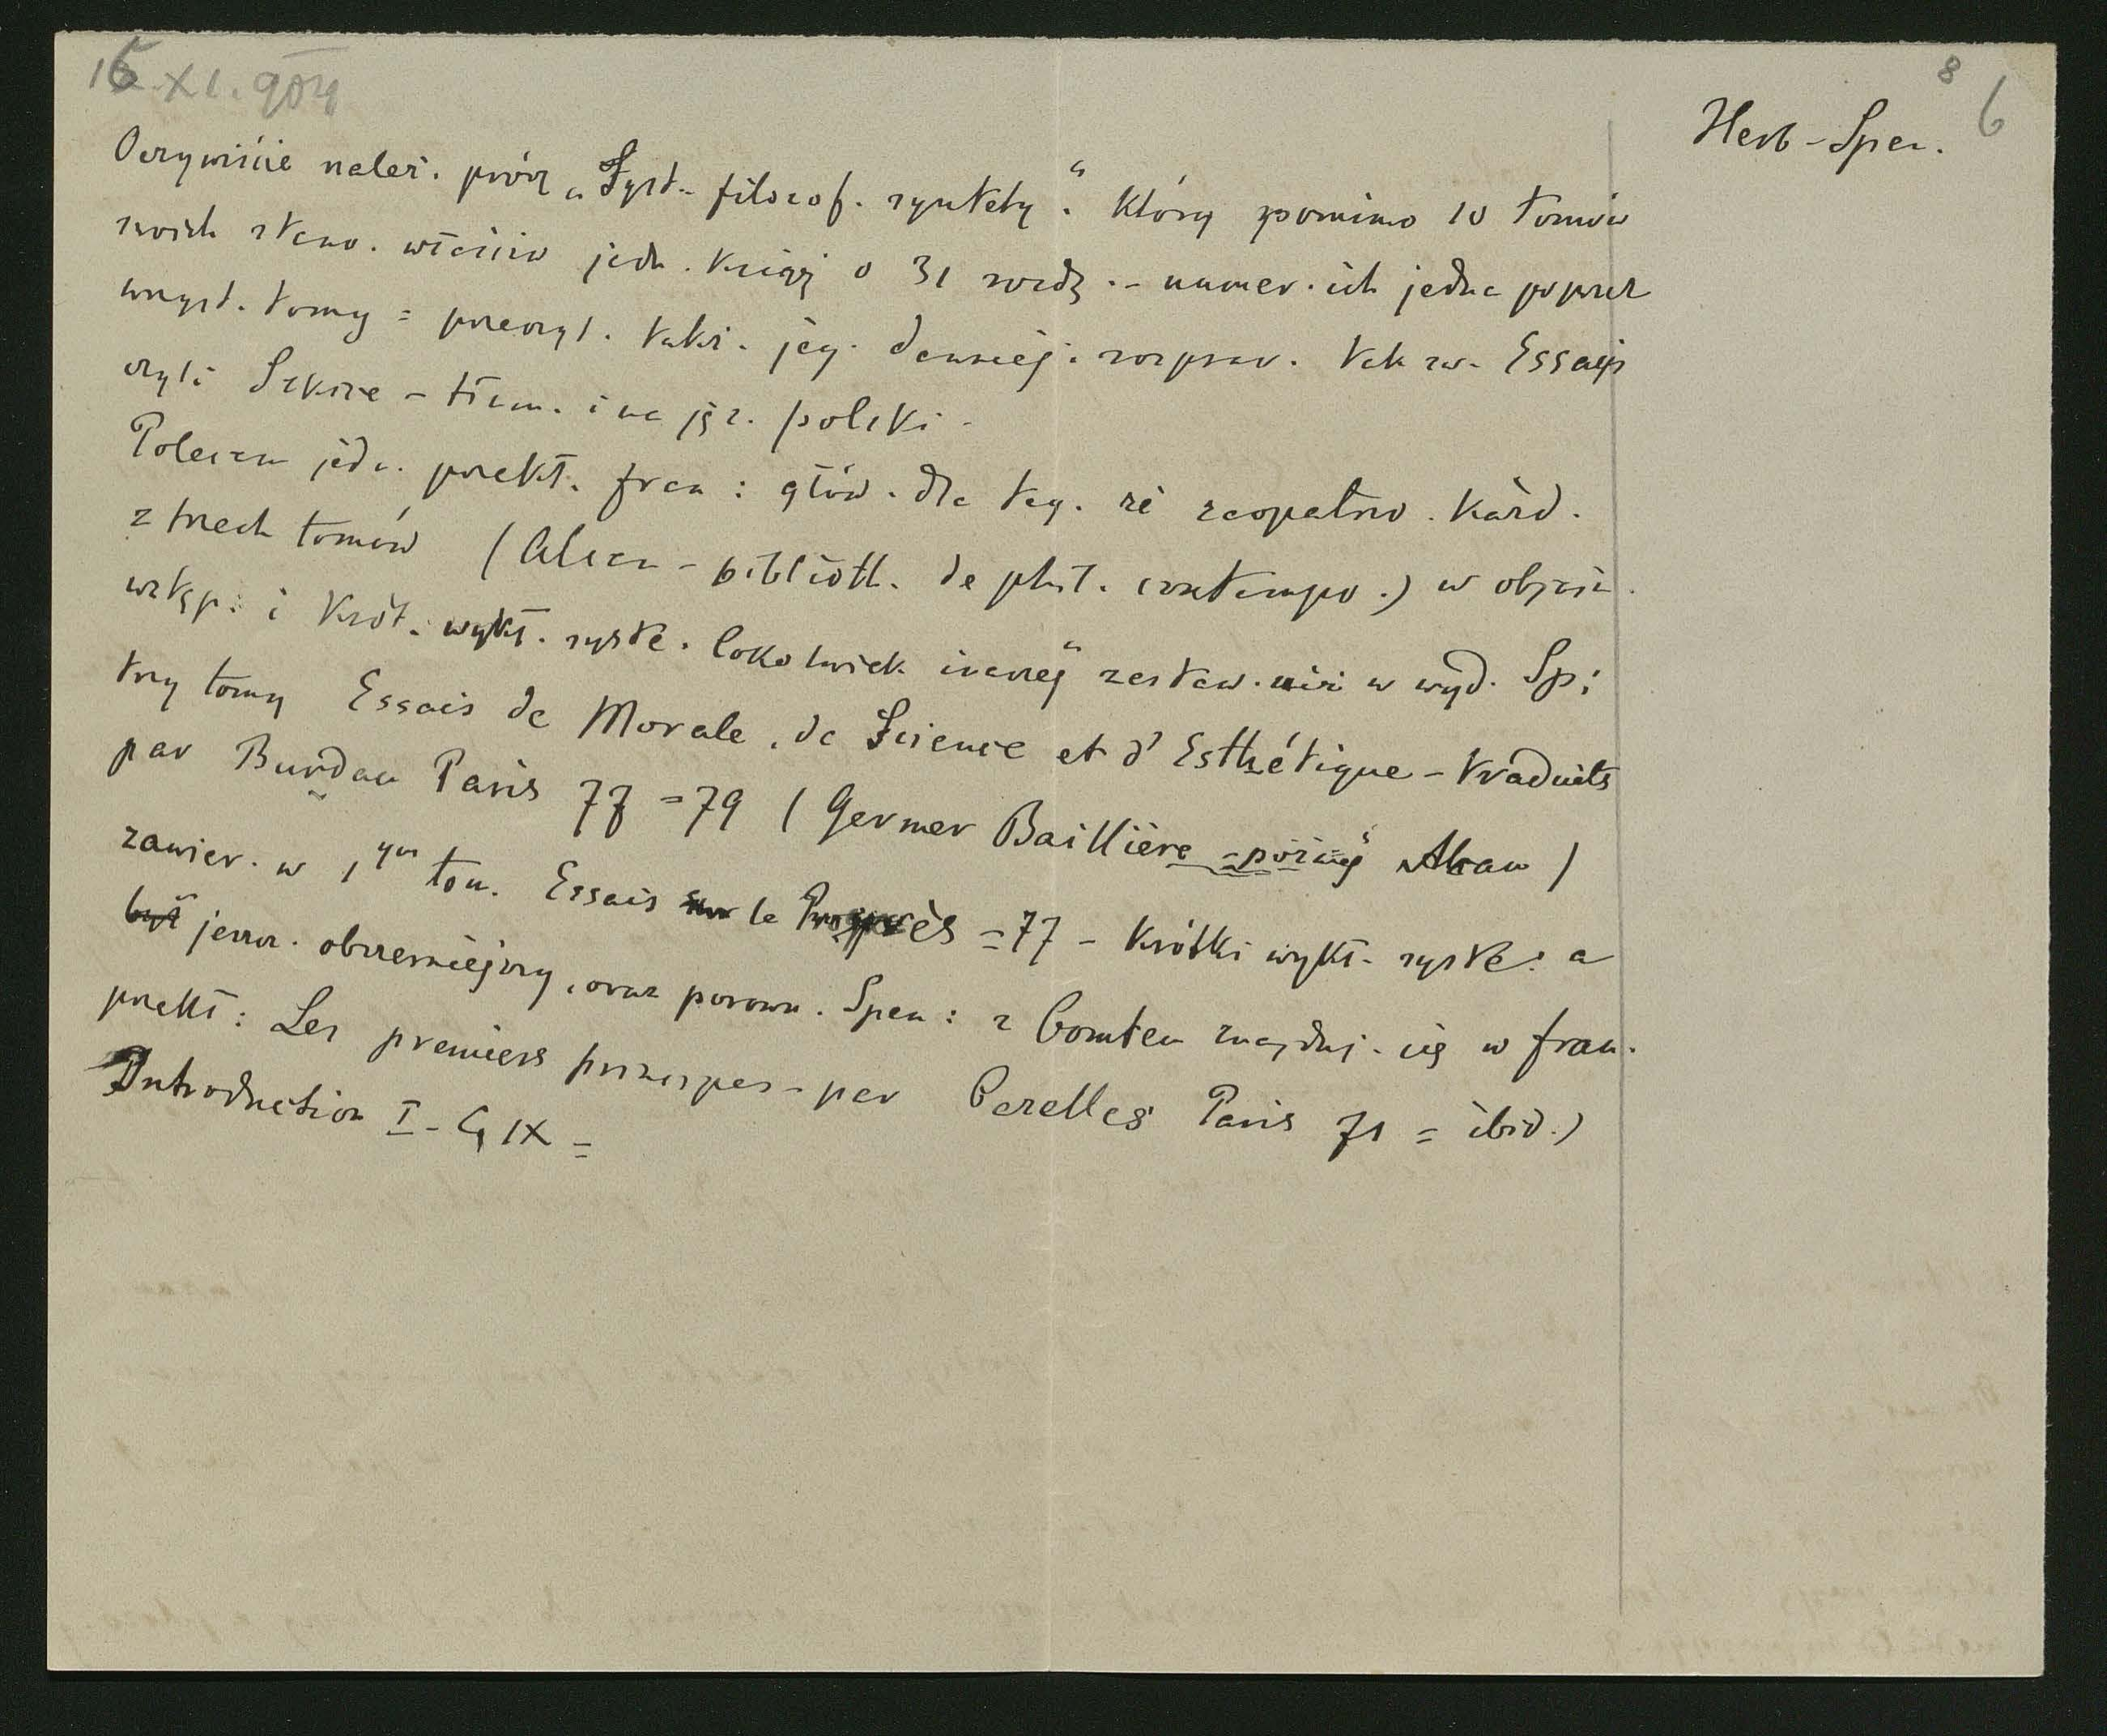 15.XI.904
8
6
Herb-Spen.
Oczywiście należ. prócz „Syst. filozof. syntety." który pomimo 10 tomów
swoich stano. właściw jedn. księgę o 31 rozdz. - numer. ich jedna poprzez
wszyst. tomy = przeczyt. takż. jeg. dawniej. rozpraw. tak zw. Essays
czyli Szkice - tłum. i na jęz. polski -
Polecam jedn. przekł. fran: głów. dla teg. że zaopatrzo. każd.
z trzech tomów (Alcan - biblioth. de phil. contempo.) w objaśn.
wstęp. i krót. wykł. syste. Cokolwiek inaczej zestaw. niż w wyd. Sp:
trzy tomy Essais de Morale, de Science et d'Esthétique - traduits
par Burdau Paris 77 = 79 (Germer Baillière - później Alcan)
zawier. w 1ym tom. Essais sur le Progrès = 77 - Krótki wykł. syste: a
był jeszcz. obszerniejszy, oraz porown. Spen: z Comtem znajduj. się w fran.
przekł: Les premiers principes - par Cazelles Paris 71 = ibid.)
Introduction I -